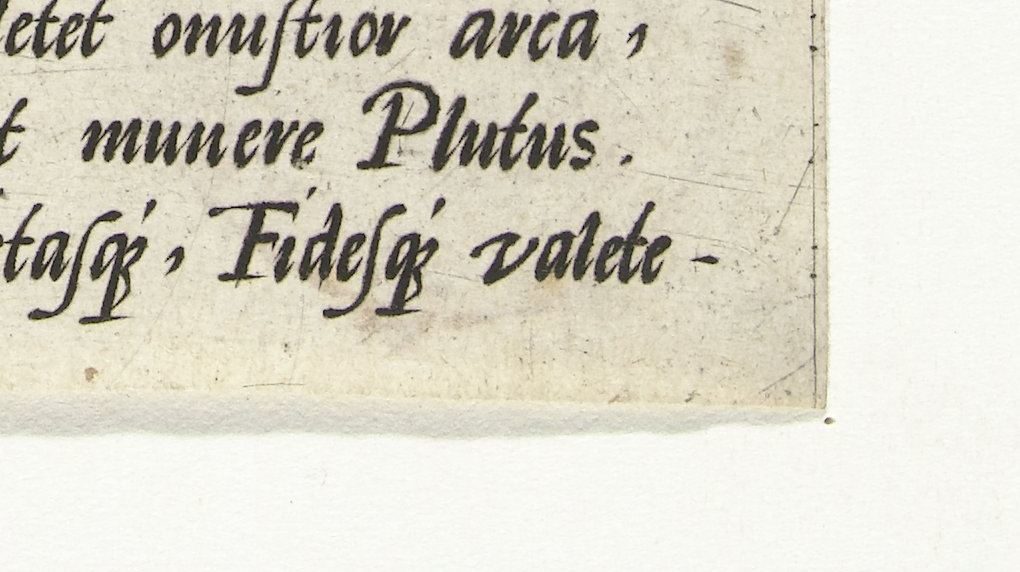 letet onuſtior arca,
t munere Plutus.
taſq́, Fideſq́ valete -